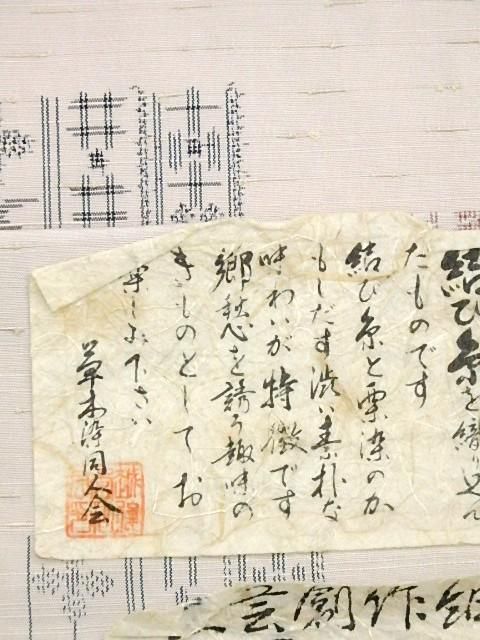 結び糸を織り込ん
たものです
結び糸と栗染のか
もしだす渋い素朴な
味わいが特徴です
郷愁を誘う趣味の
きものとしてお
しみ下さい
草木染同人会
芸創作